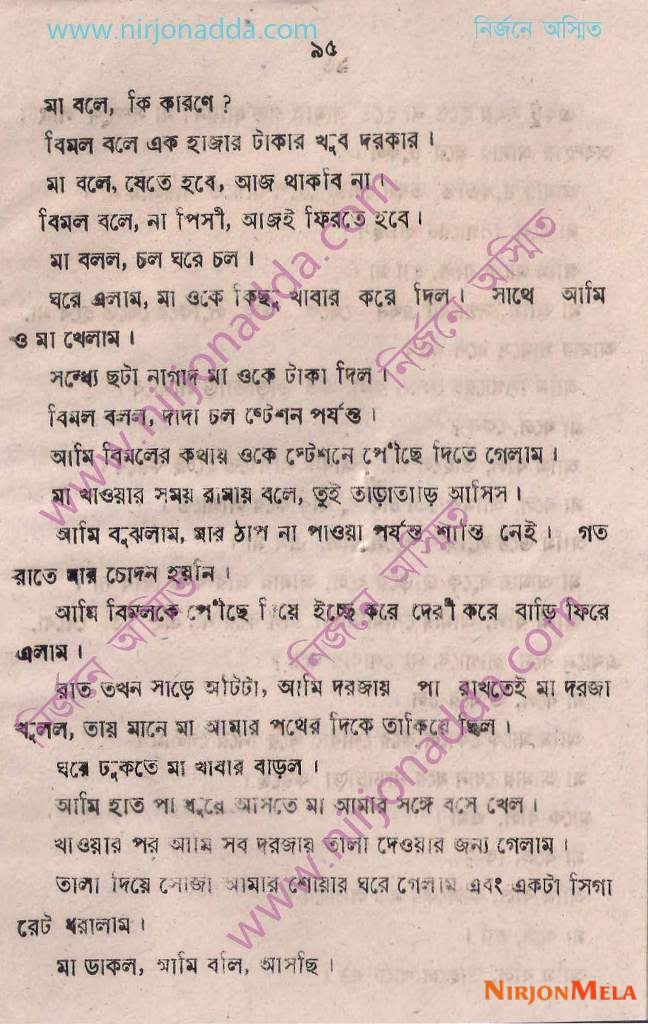 www.nirjonadda.com
নির্জনে অস্মিত
৯৫
মা বলে, কি কারণে ?
বিমল বলে এক হাজার টাকার খুব দরকার ।
মা বলে, যেতে হবে, আজ থাকবি না ।
বিমল বলে, না পিসী, আজই ফিরতে হবে ।
মা বলল, চল ঘরে চল ।
ঘরে এলাম, মা ওকে কিছু খাবার করে দিল । সাথে আমি
ও মা খেলাম ।
সন্ধ্যে ছটা নাগাদ মা ওকে টাকা দিল ।
বিমল বলল, দাদা চল ষ্টেশন পর্যন্ত ।
আমি বিমলের কথায় ওকে স্টেশনে পৌঁছে দিতে গেলাম ।
মা যাওয়ার সময় আমায় বলে, তুই তাড়াতাড়ি আসিস ।
আমি বুঝলাম, মার ঠাপ না পাওয়া পর্যন্ত শান্তি নেই । গত
রাতে মার চোদন হয়নি ।
আমি বিমলকে পৌঁছে দিয়ে ইচ্ছে করে দেরী করে বাড়ি ফিরে
এলাম ।
রাত তখন সাড়ে আটটা, আমি দরজায় পা রাখতেই মা দরজা
খুলল, তায় মানে মা আমার পথের দিকে তাকিয়ে ছিল ।
ঘরে ঢুকতে মা খাবার বাড়ল ।
আমি হাত পা ধুয়ে আসতে মা আমার সঙ্গে বসে খেল ।
খাওয়ার পর আমি সব দরজায় তালা দেওয়ার জন্য গেলাম ।
তালা দিয়ে সোজা আমার শোয়ার ঘরে গেলাম এবং একটা সিগা
রেট ধরালাম ।
মা ডাকল, আমি বলি, আসছি ।
www.nirjonadda.com
নির্জনে অস্মিত
নির্জনে অস্মিত
নির্জনে অস্মিত
www.nirjonadda.com
NIRJONMELA